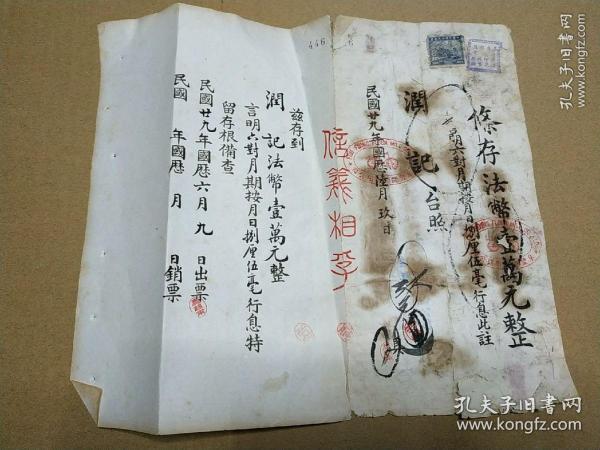 條存法幣壹萬元整
言明六對月期按月日捌厘伍毫行息此註
潤記台照
民國廿九年國曆陸月玖日
信義相孚
446
茲存到
潤記法幣壹萬元整
言明六對月期按月日捌厘伍毫行息特
留存根備查
民國廿九年國曆六月九日出票
民國 年國曆 月 日銷票
孔夫子旧书网
www.kongfz.com
孔夫子旧书网
www.kongfz.com